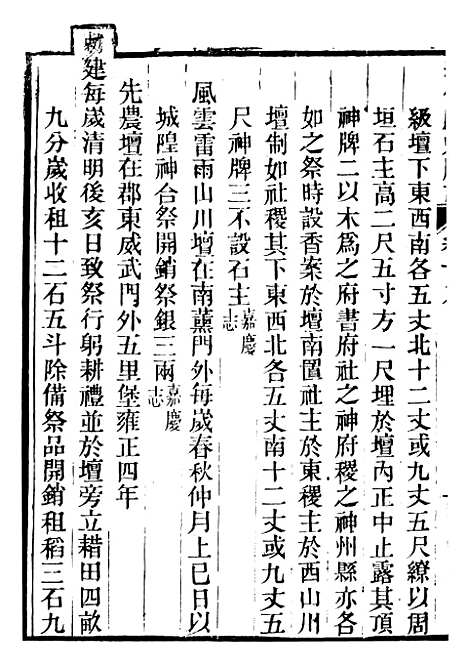 級壇下東西南各五丈北十二丈或九丈五尺繚以周
垣石主高二尺五寸方一尺埋於壇內正中止露其頂
神牌二以木爲之府書府社之神府稷之神州縣亦各
如之祭時設香案於壇南置社主於東稷主於西山川
壇制如社稷其下東西北各五丈南十二丈或九丈五
尺神牌三不設石主嘉慶志
風雲雷雨山川壇在南薰門外每歲春秋仲月上巳日以
城隍神合祭開銷祭銀三兩嘉慶志
先農壇在郡東威武門外五里堡雍正四年
勅建每歲清明後亥日致祭行躬耕禮並於壇旁立耤田四畝
九分歲收租十二石五斗除備祭品開銷租稻三石九